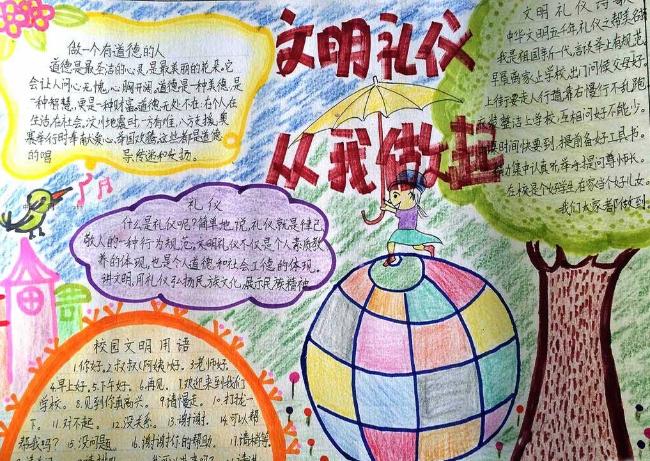 文明礼仪
从我做起
做一个有道德的人
道德是最圣洁的心灵,是最美丽的花朵。它
会让人问心无愧,心胸开阔,道德,是一种美德,是
一种智慧,更是一种财富。道德无处不在:在个人在
生活在社会,汶川地震时一方有难,八方支援,奥
运举行时奉献爱心,
的唱
礼仪
什么是礼仪呢?简单地说,礼仪就是律己
敬人的一种行为规范。文明礼仪不仅是个人素质教
养的体现,也是个人道德和社会公德的体现。
讲文明,用礼仪弘扬民族文化,展示民族精神
校园文明用语
1.你好。2.叔叔(阿姨)好。3.老师好。
4.早上好。5.下午好。6.再见。7.欢迎来到我们
学校。8.见到你真高兴。9.请慢走。10.打扰一
下。11.对不起。12.没关系。13.谢谢。14.可以帮
帮我吗?15.没问题。16.谢谢你的帮助。17.请稍等。
文明礼仪诗歌
中华文明五千年,礼仪之邦美名
我是祖国新一代,言谈举止有规范。
早晨离家上学校,出门问候父母好。
上街要走人行道,靠右慢行不乱跑
整洁上学校,互相问好不能少。
时间快要到,提前备好工具书。
力集中认真听,举手提问尊师长。
在校是个好学生,在家当个好儿女。
我们大家都做到